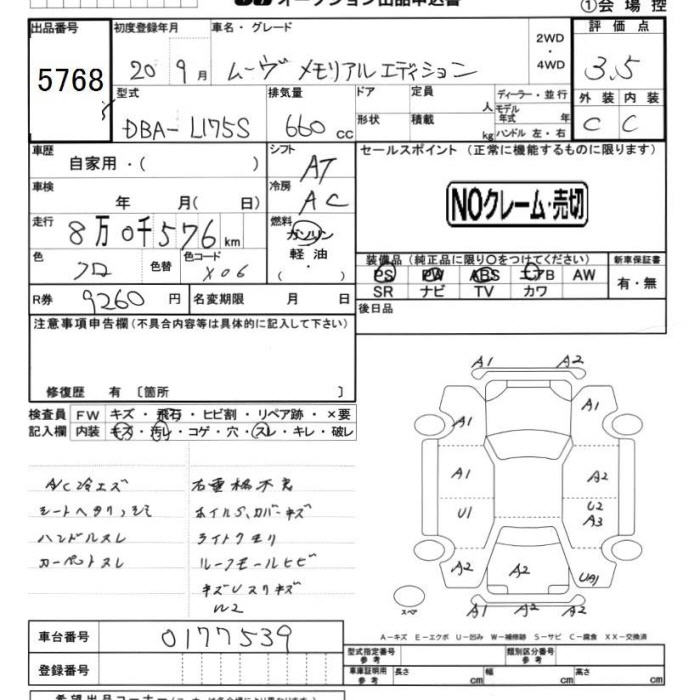 オークション出品申込書
①会場控
出品番号 初度登録年月 車名・グレード 2WD・4WD 評価点
5768 20 9月 ムーヴ メモリアルエディション 3.5
型式 排気量 ドア 定員 人 ディーラー・並行 外装 内装
DBA-L175S 660cc 形状 積載 kg モデル年式 年 C C
ハンドル 左・右
車歴 自家用・( ) シフト AT セールスポイント (正常に機能するものに限ります)
車検 年 月( 日) 冷房 AC NOクレーム・売切
走行 8万0千576km 燃料 ガソリン・軽油・( )
色 クロ 色替 色コード X06
装備品 (純正品に限り○をつけてください) 新車保証書
PS PW ABS エアB AW 有・無
SR ナビ TV カワ
R券 9260円 名変期限 月 日 後日品
注意事項申告欄(不具合内容等は具体的に記入して下さい)
修復歴 有 〔箇所 〕
検査員 FW キズ・飛石・ヒビ割・リペア跡・×要
記入欄 内装 キズ・汚レ・コゲ・穴・スレ・キレ・破レ
A/C冷エズ
シートヘタリ
ハンドルスレ
カーペットスレ
ホイルS,カバーキズ
ライトクモリ
ルーフモールヒビ
W2
A1 A2
A1 A1
A1 A2
U1 U2
A3
A2 A2 UA1
A1 A2 A2
スペア
A-キズ E-エクボ U-凹み W-補修跡 S-サビ C-腐食 XX-交換済
車台番号 0177539
登録番号
型式指定番号 参考 類別区分番号 参考
車庫証明用 参考 長さ cm 幅 cm 高さ cm
希望出品コーナー